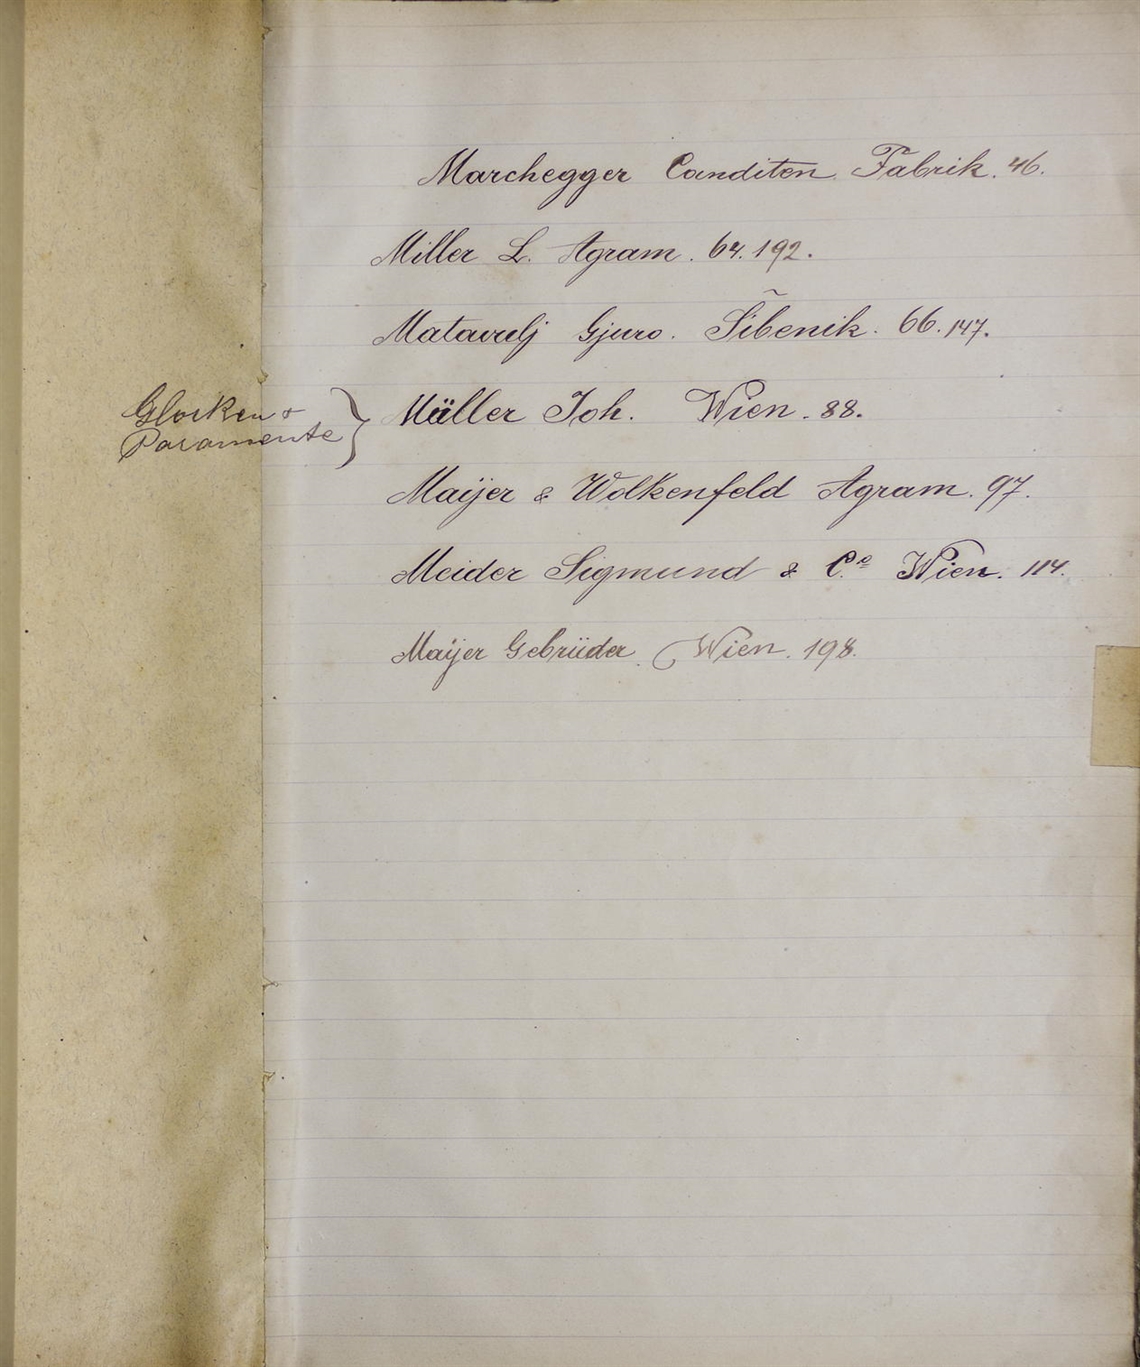 Marchegger Canditen Fabrik. 46.
Miller L. Agram. 64. 192.
Matavulj Gjuro. Šibenik. 66. 147.
Glocken &
Paramente } Müller Joh. Wien. 88.
Maÿer & Wolkenfeld Agram. 97.
Meider Sigmund & Co Wien. 114.
Maÿer Gebrüder. Wien. 198.